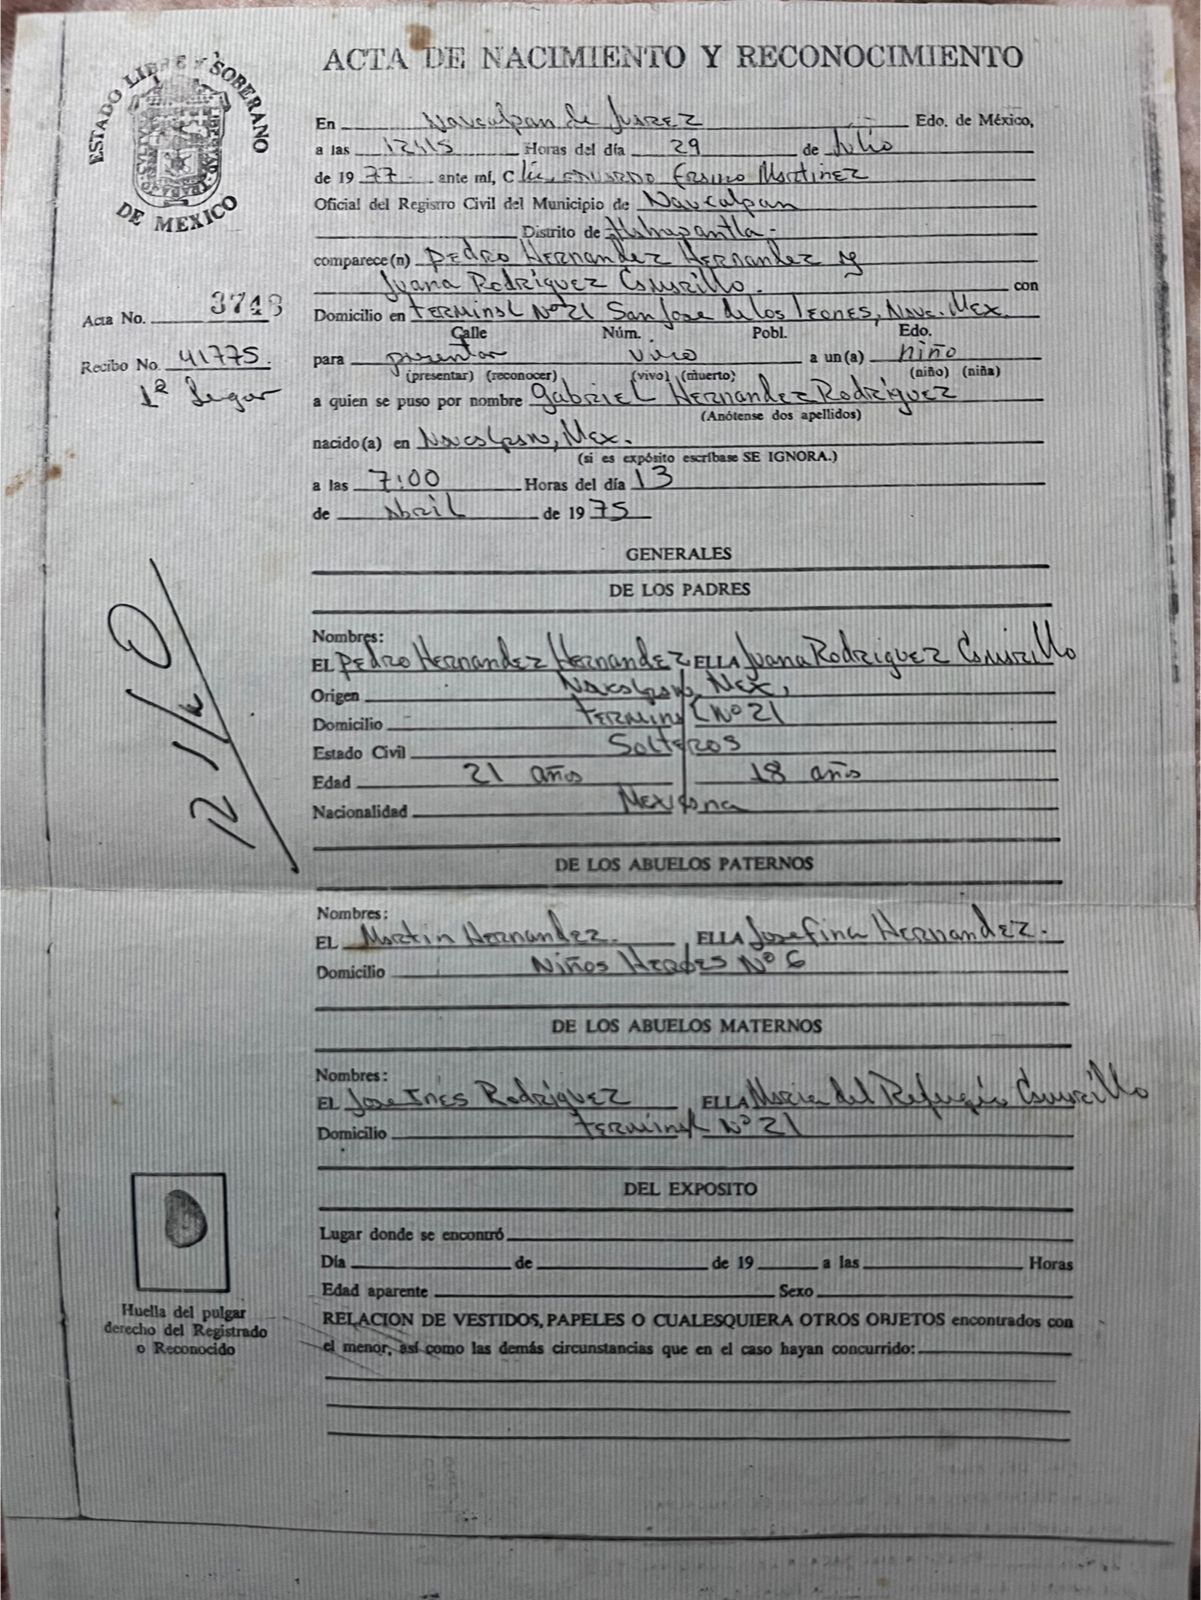 ESTADO LIBRE Y SOBERANO
DE MEXICO
ACTA DE NACIMIENTO Y RECONOCIMIENTO
En Naucalpan de Juarez Edo. de México,
a las 12:15 Horas del día 29 de Julio
de 1977. ante mí, C Lic. EDUARDO Martinez
Oficial del Registro Civil del Municipio de Naucalpan
Distrito de Tlalnepantla-
comparece(n) Pedro Hernandez Hernandez y
Juana Rodriguez con
Acta No. 3743
Domicilio en terminal Nº 21 San Jose de los Leones, Nauc. Mex.
Calle Núm. Pobl. Edo.
Recibo No. 41775.
para presentar vivo a un(a) niño
(presentar) (reconocer) (vivo) (muerto) (niño) (niña)
1ª
a quien se puso por nombre Gabriel Hernandez Rodriguez
(Anótense dos apellidos)
nacido(a) en Naucalpan, Mex.
(si es expósito escríbase SE IGNORA.)
a las 7:00 Horas del día 13
de Abril de 1975
GENERALES
DE LOS PADRES
Nombres:
EL Pedro Hernandez Hernandez ELLA Juana Rodriguez
Origen Naucalpan, Mex,
Domicilio terminal Nº 21
Estado Civil Solteros
Edad 21 años 18 años
Nacionalidad Mexicana
DE LOS ABUELOS PATERNOS
Nombres:
EL Martin Hernandez. ELLA Josefina Hernandez.
Domicilio Niños Heroes Nº 6
DE LOS ABUELOS MATERNOS
Nombres:
EL Jose Ines Rodriguez ELLA Maria del Refugio
Domicilio terminal Nº 21
DEL EXPOSITO
Lugar donde se encontró
Día de de 19 a las Horas
Edad aparente Sexo
Huella del pulgar
derecho del Registrado
o Reconocido
RELACION DE VESTIDOS, PAPELES O CUALESQUIERA OTROS OBJETOS encontrados con
el menor, así como las demás circunstancias que en el caso hayan concurrido: